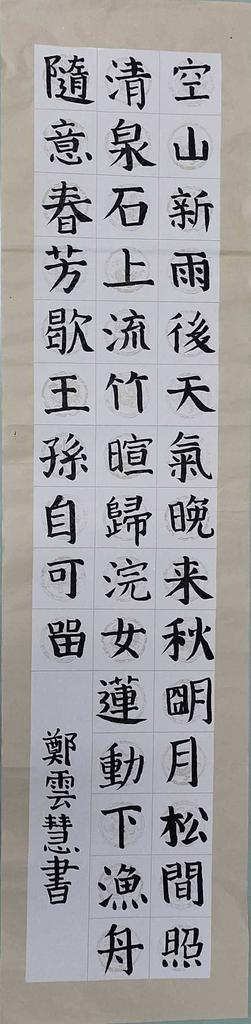 空山新雨後天氣晚来秋明月松間照
清泉石上流竹暄歸浣女蓮動下漁舟
隨意春芳歇王孫自可留
鄭雲慧書